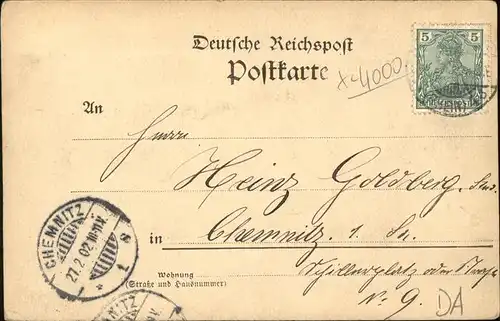 Deutsche Reichspost
Postkarte
x-4000
5
An
Herrn
Heinz Goldberg,
in Chemnitz i. Sa.
Schillerplatz oder
N. 9.
Wohnung
(Straße und Hausnummer)
CHEMNITZ
27.2.02
* 1
DA
CHEMNITZ